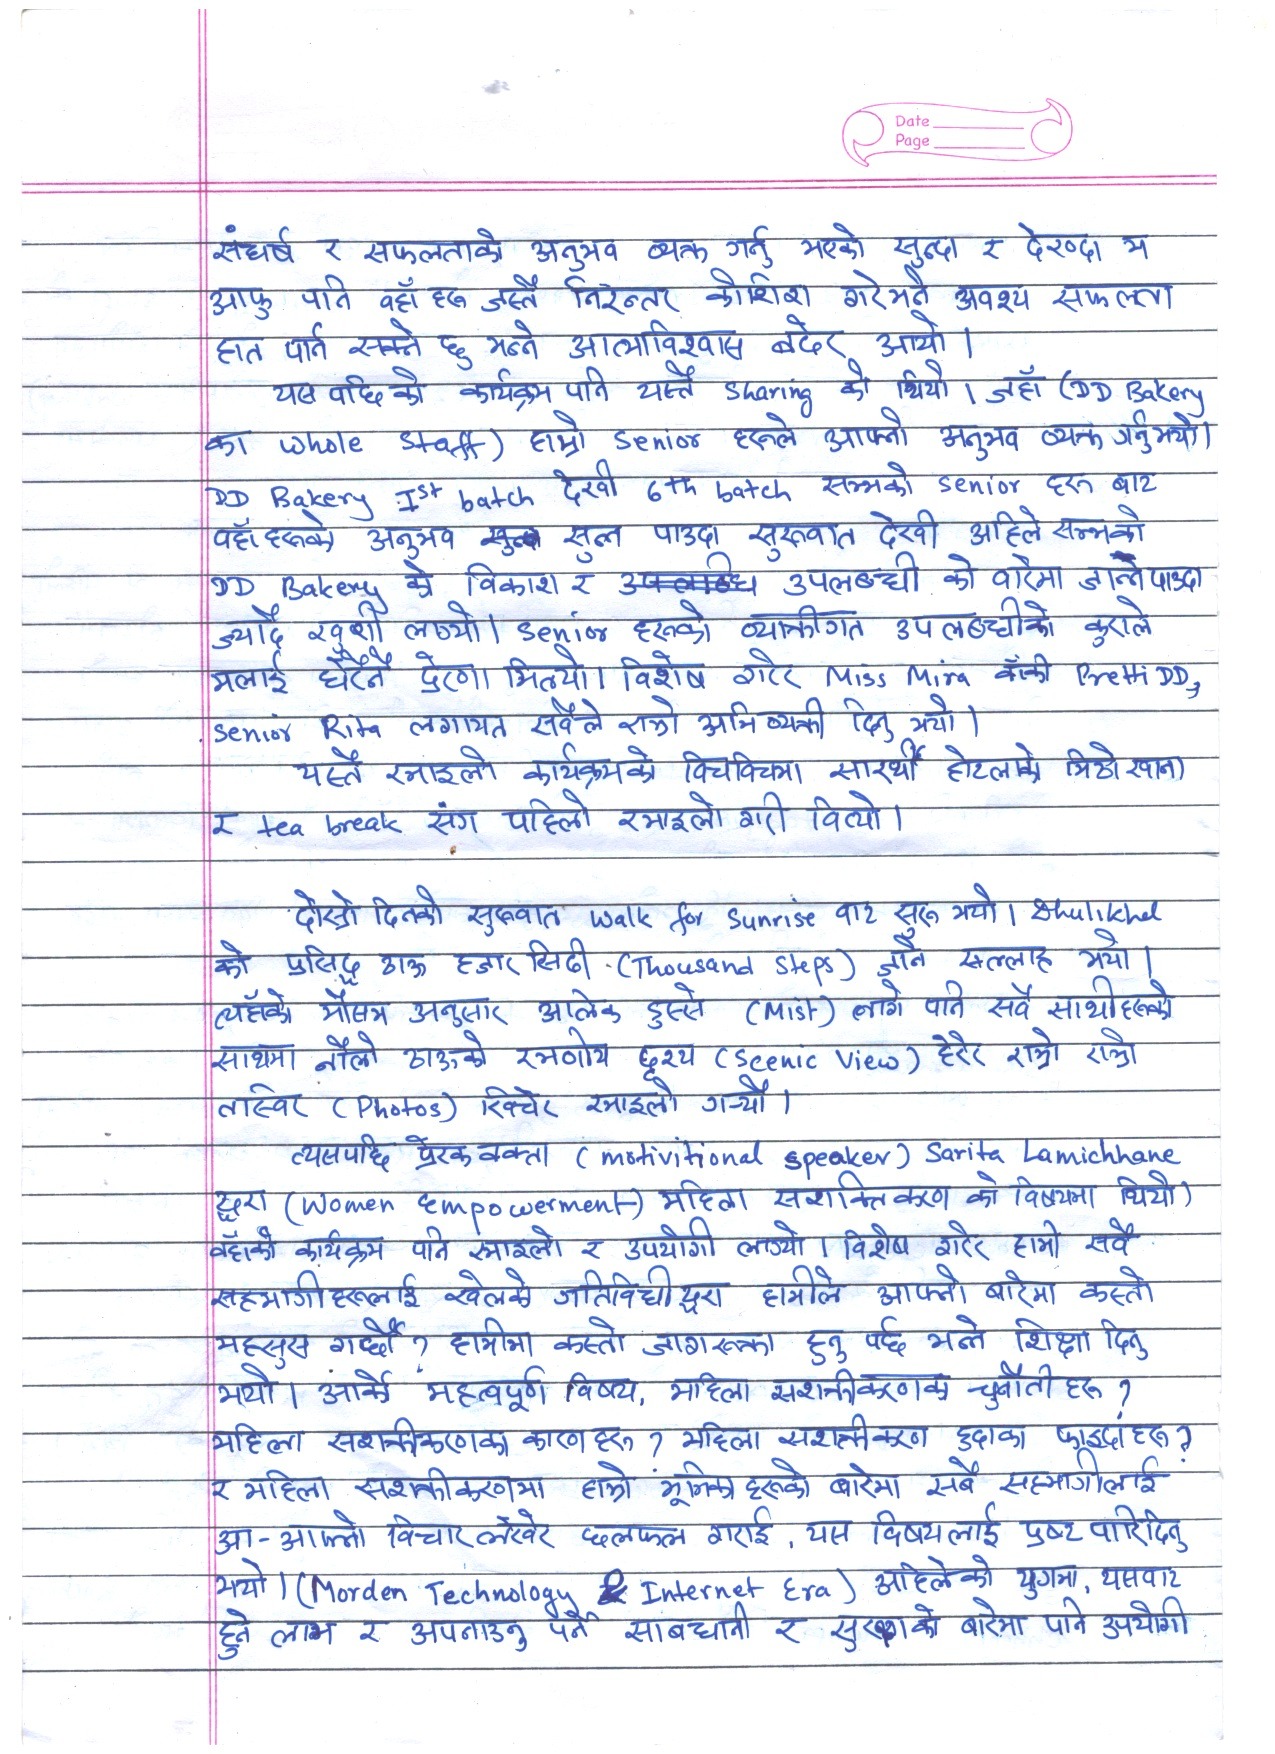 Date
Page
संघर्ष र सफलताको अनुभव व्यक्त गर्नु भएको सुन्दा र देख्दा म
आफु पनि वहाँहरू जस्तै निरन्तर कोशिश गरेमनै अवश्य सफलता
हात पार्न सक्ने छु भन्ने आत्मविश्वास बढेर आयो ।
यस पछिको कार्यक्रम पनि यस्तै sharing को थियो । जहाँ (DD Bakery
का whole staff) हाम्रो senior हरूले आफ्नो अनुभव व्यक्त गर्नुभयो।
DD Bakery Ist batch देखी 6th batch सम्मको senior हरू बाट
वहाँहरूको अनुभव सुन्न पाउदा सुरूवात देखी अहिले सम्मको
DD Bakery को विकाश र उपलब्धि उपलब्धी को वारेमा जान्न पाउदा
ज्यादै खुशी लाग्यो। senior हरूको व्यक्तीगत उपलब्धीको कुराले
मलाई धेरैनै प्रेरणा मिल्यो। विशेष गरेर Miss Mira काँकी Pretti DD,
senior Rita लगायत सवैले राम्रो अभिव्यक्ती दिनु भयो ।
यस्तै रमाइलो कार्यक्रमको विचविचमा सारथी होटलको मिठो खाना
र tea break संग पहिलो रमाइलो गरी वित्यो ।
दोस्रो दिनको सुरूवात walk for sunrise वाट सुरू भयो । Dhulikhel
को प्रसिद्ध ठाऊ हजार सिढी (Thousand steps) जाने सल्लाह भयो ।
त्यहाँको मौसम अनुसार आलेक डुस्से (Mist) लागे पनि सवै साथीहरूको
साथमा नौलो ठाऊको रमणीय दृश्य (Scenic View) हेरेर राम्रो राम्रो
तस्विर (Photos) खिचेर रमाइलो गर्‍यौं ।
त्यसपछि प्रेरक वक्ता (motivitional speaker) Sarita Lamichhane
द्वारा (Women Empowerment) महिला सशक्तिकरण को विषयमा थियो।
वहाँको कार्यक्रम पनि रमाइलो र उपयोगी लाग्यो । विशेष गरेर हामी सवै
सहभागीहरूलाई खेलको गतिविधीद्वारा हामीले आफ्नो बारेमा कस्तो
महसुस गर्छौं ? हामीमा कस्तो जागरूक्ता हुनु पर्छ भन्ने शिक्षा दिनु
भयो । अर्को महत्वपूर्ण विषय, महिला सशक्तीकरणका चुनौतीहरू ?
महिला सशक्तीकरणका कारणहरू ? महिला सशक्तीकरण हुदाका फाइदाहरू ?
र महिला सशक्तीकरणमा हाम्रो भूमिका हरूको बारेमा सबै सहभागीलाई
आ-आफ्नो विचार लेखेर छलफल गराई, यस विषयलाई प्रष्ट पारिदिनु
भयो । (Morden Technology & Internet Era) अहिलेको युगमा, यसवाट
हुने लाभ र अपनाउनु पर्ने साबधानी र सुरक्षाको बारेमा पनि उपयोगी